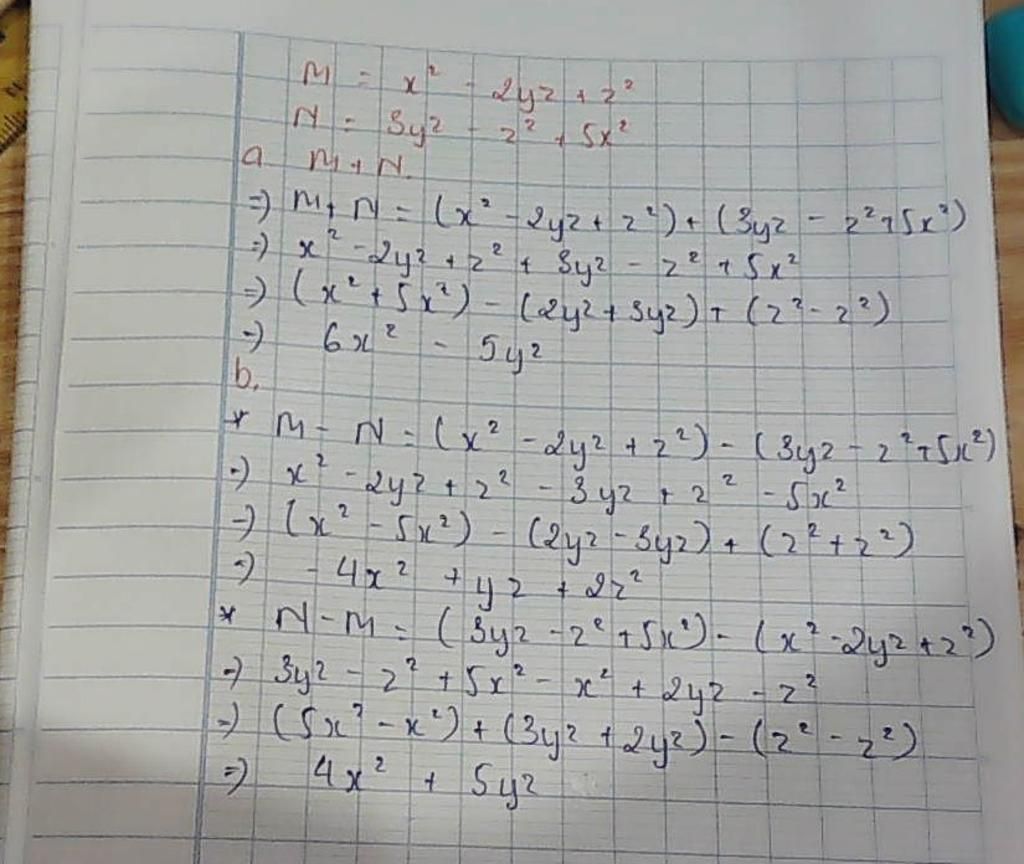 M = x² - 2yz + z²
N = 3yz - z² + 5x²
a M + N.
=> M + N = (x² - 2yz + z²) + (3yz - z² + 5x²)
=> x² - 2yz + z² + 3yz - z² + 5x²
=> (x² + 5x²) - (2yz + 3yz) + (z² - z²)
=> 6x² - 5yz
b.
* M - N = (x² - 2yz + z²) - (3yz - z² + 5x²)
=> x² - 2yz + z² - 3yz + z² - 5x²
=> (x² - 5x²) - (2yz - 3yz) + (z² + z²)
=> - 4x² + yz + 2z²
* N - M = (3yz - z² + 5x²) - (x² - 2yz + z²)
=> 3yz - z² + 5x² - x² + 2yz - z²
=> (5x² - x²) + (3yz + 2yz) - (z² - z²)
=> 4x² + 5yz